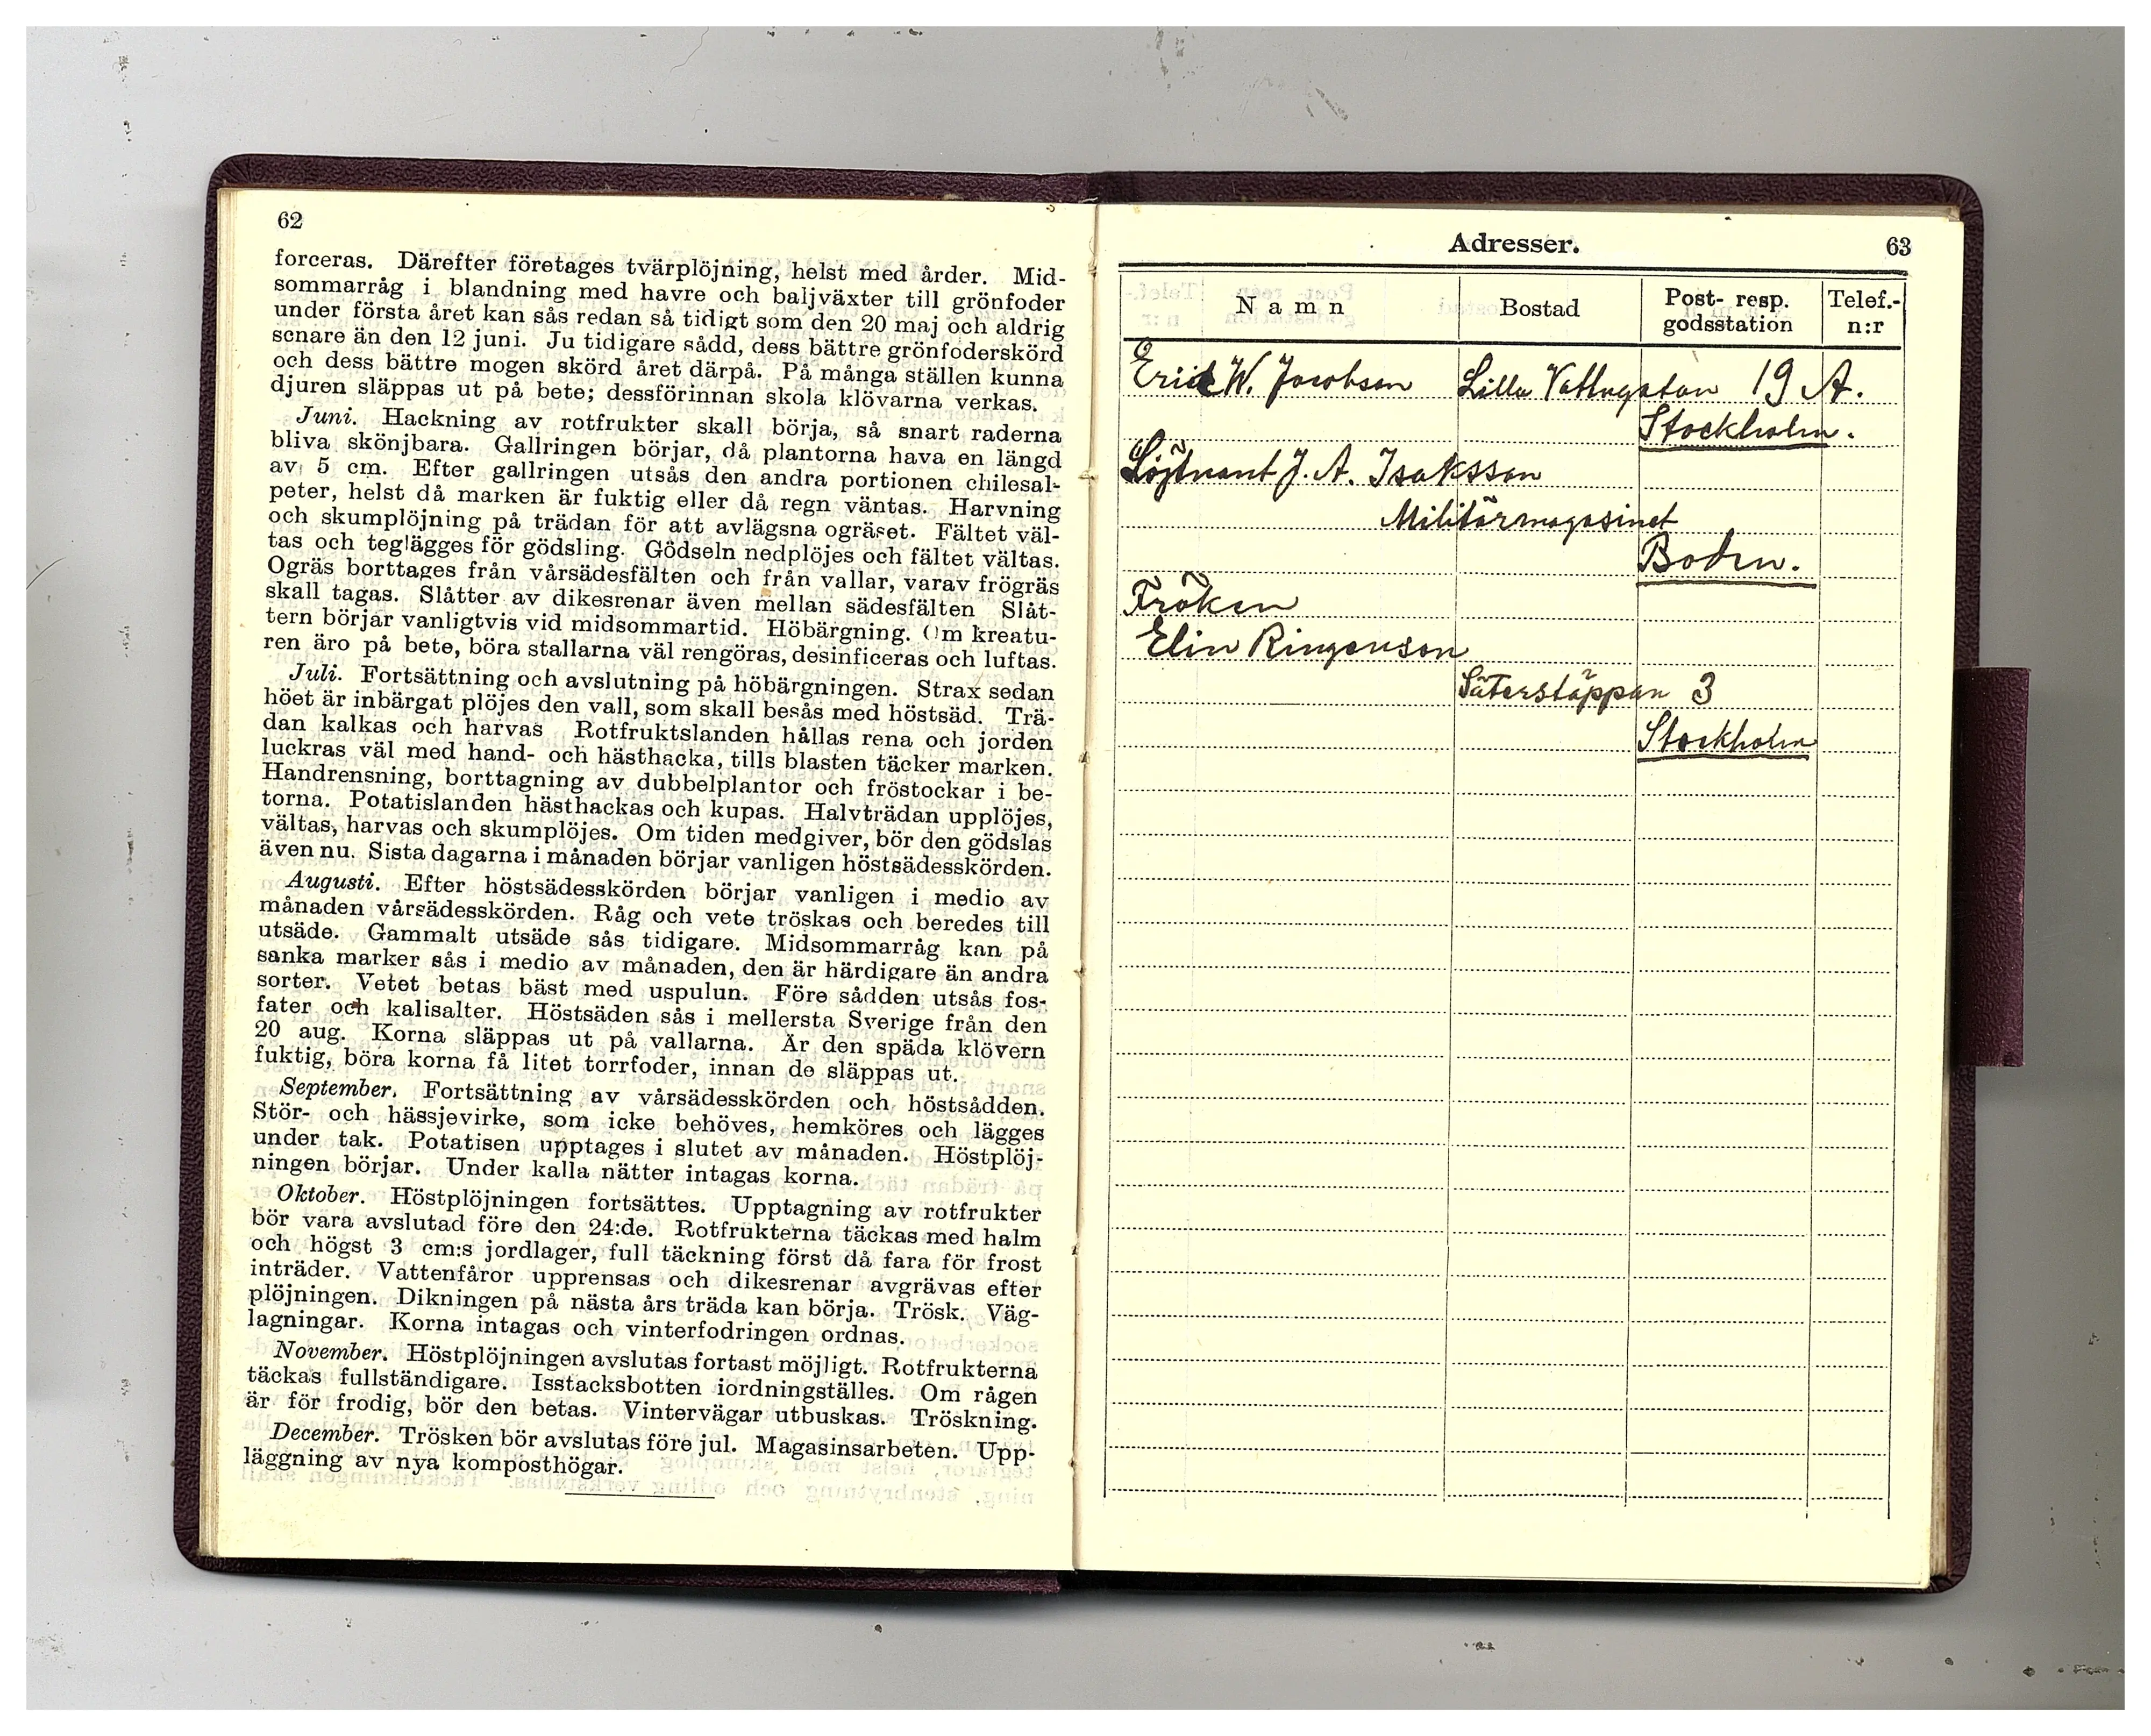 62
forceras. Därefter företages tvärplöjning, helst med årder. Mid-
sommarråg i blandning med havre och baljväxter till grönfoder
under första året kan sås redan så tidigt som den 20 maj och aldrig
senare än den 12 juni. Ju tidigare sådd, dess bättre grönfoderskörd
och dess bättre mogen skörd året därpå. På många ställen kunna
djuren släppas ut på bete; dessförinnan skola klövarna verkas.
Juni. Hackning av rotfrukter skall börja, så snart raderna
bliva skönjbara. Gallringen börjar, då plantorna hava en längd
av 5 cm. Efter gallringen utsås den andra portionen chilesal-
peter, helst då marken är fuktig eller då regn väntas. Harvning
och skumplöjning på trädan för att avlägsna ogräset. Fältet väl-
tas och teglägges för gödsling. Gödseln nedplöjes och fältet vältas.
Ogräs borttages från vårsädesfälten och från vallar, varav frögräs
skall tagas. Slåtter av dikesrenar även mellan sädesfälten Slåt-
tern börjar vanligtvis vid midsommartid. Höbärgning. Om kreatu-
ren äro på bete, böra stallarna väl rengöras, desinficeras och luftas.
Juli. Fortsättning och avslutning på höbärgningen. Strax sedan
höet är inbärgat plöjes den vall, som skall besås med höstsäd. Trä-
dan kalkas och harvas Rotfruktslanden hållas rena och jorden
luckras väl med hand- och hästhacka, tills blasten täcker marken.
Handrensning, borttagning av dubbelplantor och fröstockar i be-
torna. Potatislanden hästhackas och kupas. Halvträdan upplöjes,
vältas, harvas och skumplöjes. Om tiden medgiver, bör den gödslas
även nu. Sista dagarna i månaden börjar vanligen höstsädesskörden.
Augusti. Efter höstsädesskörden börjar vanligen i medio av
månaden vårsädesskörden. Råg och vete tröskas och beredes till
utsäde. Gammalt utsäde sås tidigare. Midsommarråg kan på
sanka marker sås i medio av månaden, den är härdigare än andra
sorter. Vetet betas bäst med uspulun. Före sådden utsås fos-
fater och kalisalter. Höstsäden sås i mellersta Sverige från den
20 aug. Korna släppas ut på vallarna. Är den späda klövern
fuktig, böra korna få litet torrfoder, innan de släppas ut.
September. Fortsättning av vårsädesskörden och höstsådden.
Stör- och hässjevirke, som icke behöves, hemköres och lägges
under tak. Potatisen upptages i slutet av månaden. Höstplöj-
ningen börjar. Under kalla nätter intagas korna.
Oktober. Höstplöjningen fortsättes. Upptagning av rotfrukter
bör vara avslutad före den 24:de. Rotfrukterna täckas med halm
och högst 3 cm:s jordlager, full täckning först då fara för frost
inträder. Vattenfåror upprensas och dikesrenar avgrävas efter
plöjningen. Dikningen på nästa års träda kan börja. Trösk. Väg-
lagningar. Korna intagas och vinterfodringen ordnas.
November. Höstplöjningen avslutas fortast möjligt. Rotfrukterna
täckas fullständigare. Isstacksbotten iordningställes. Om rågen
är för frodig, bör den betas. Vintervägar utbuskas. Tröskning.
December. Trösken bör avslutas före jul. Magasinsarbeten. Upp-
läggning av nya komposthögar.
Adresser. 63
Namn Bostad Post- resp. godsstation Telef.-n:r
Erick W. Jacobson Lilla Vattugatan 19 A.
Stockholm.
Löjtnant J. A. Isaksson
Militärmagasinet
Boden.
Fröken
Elin Ringenson
Stockholm